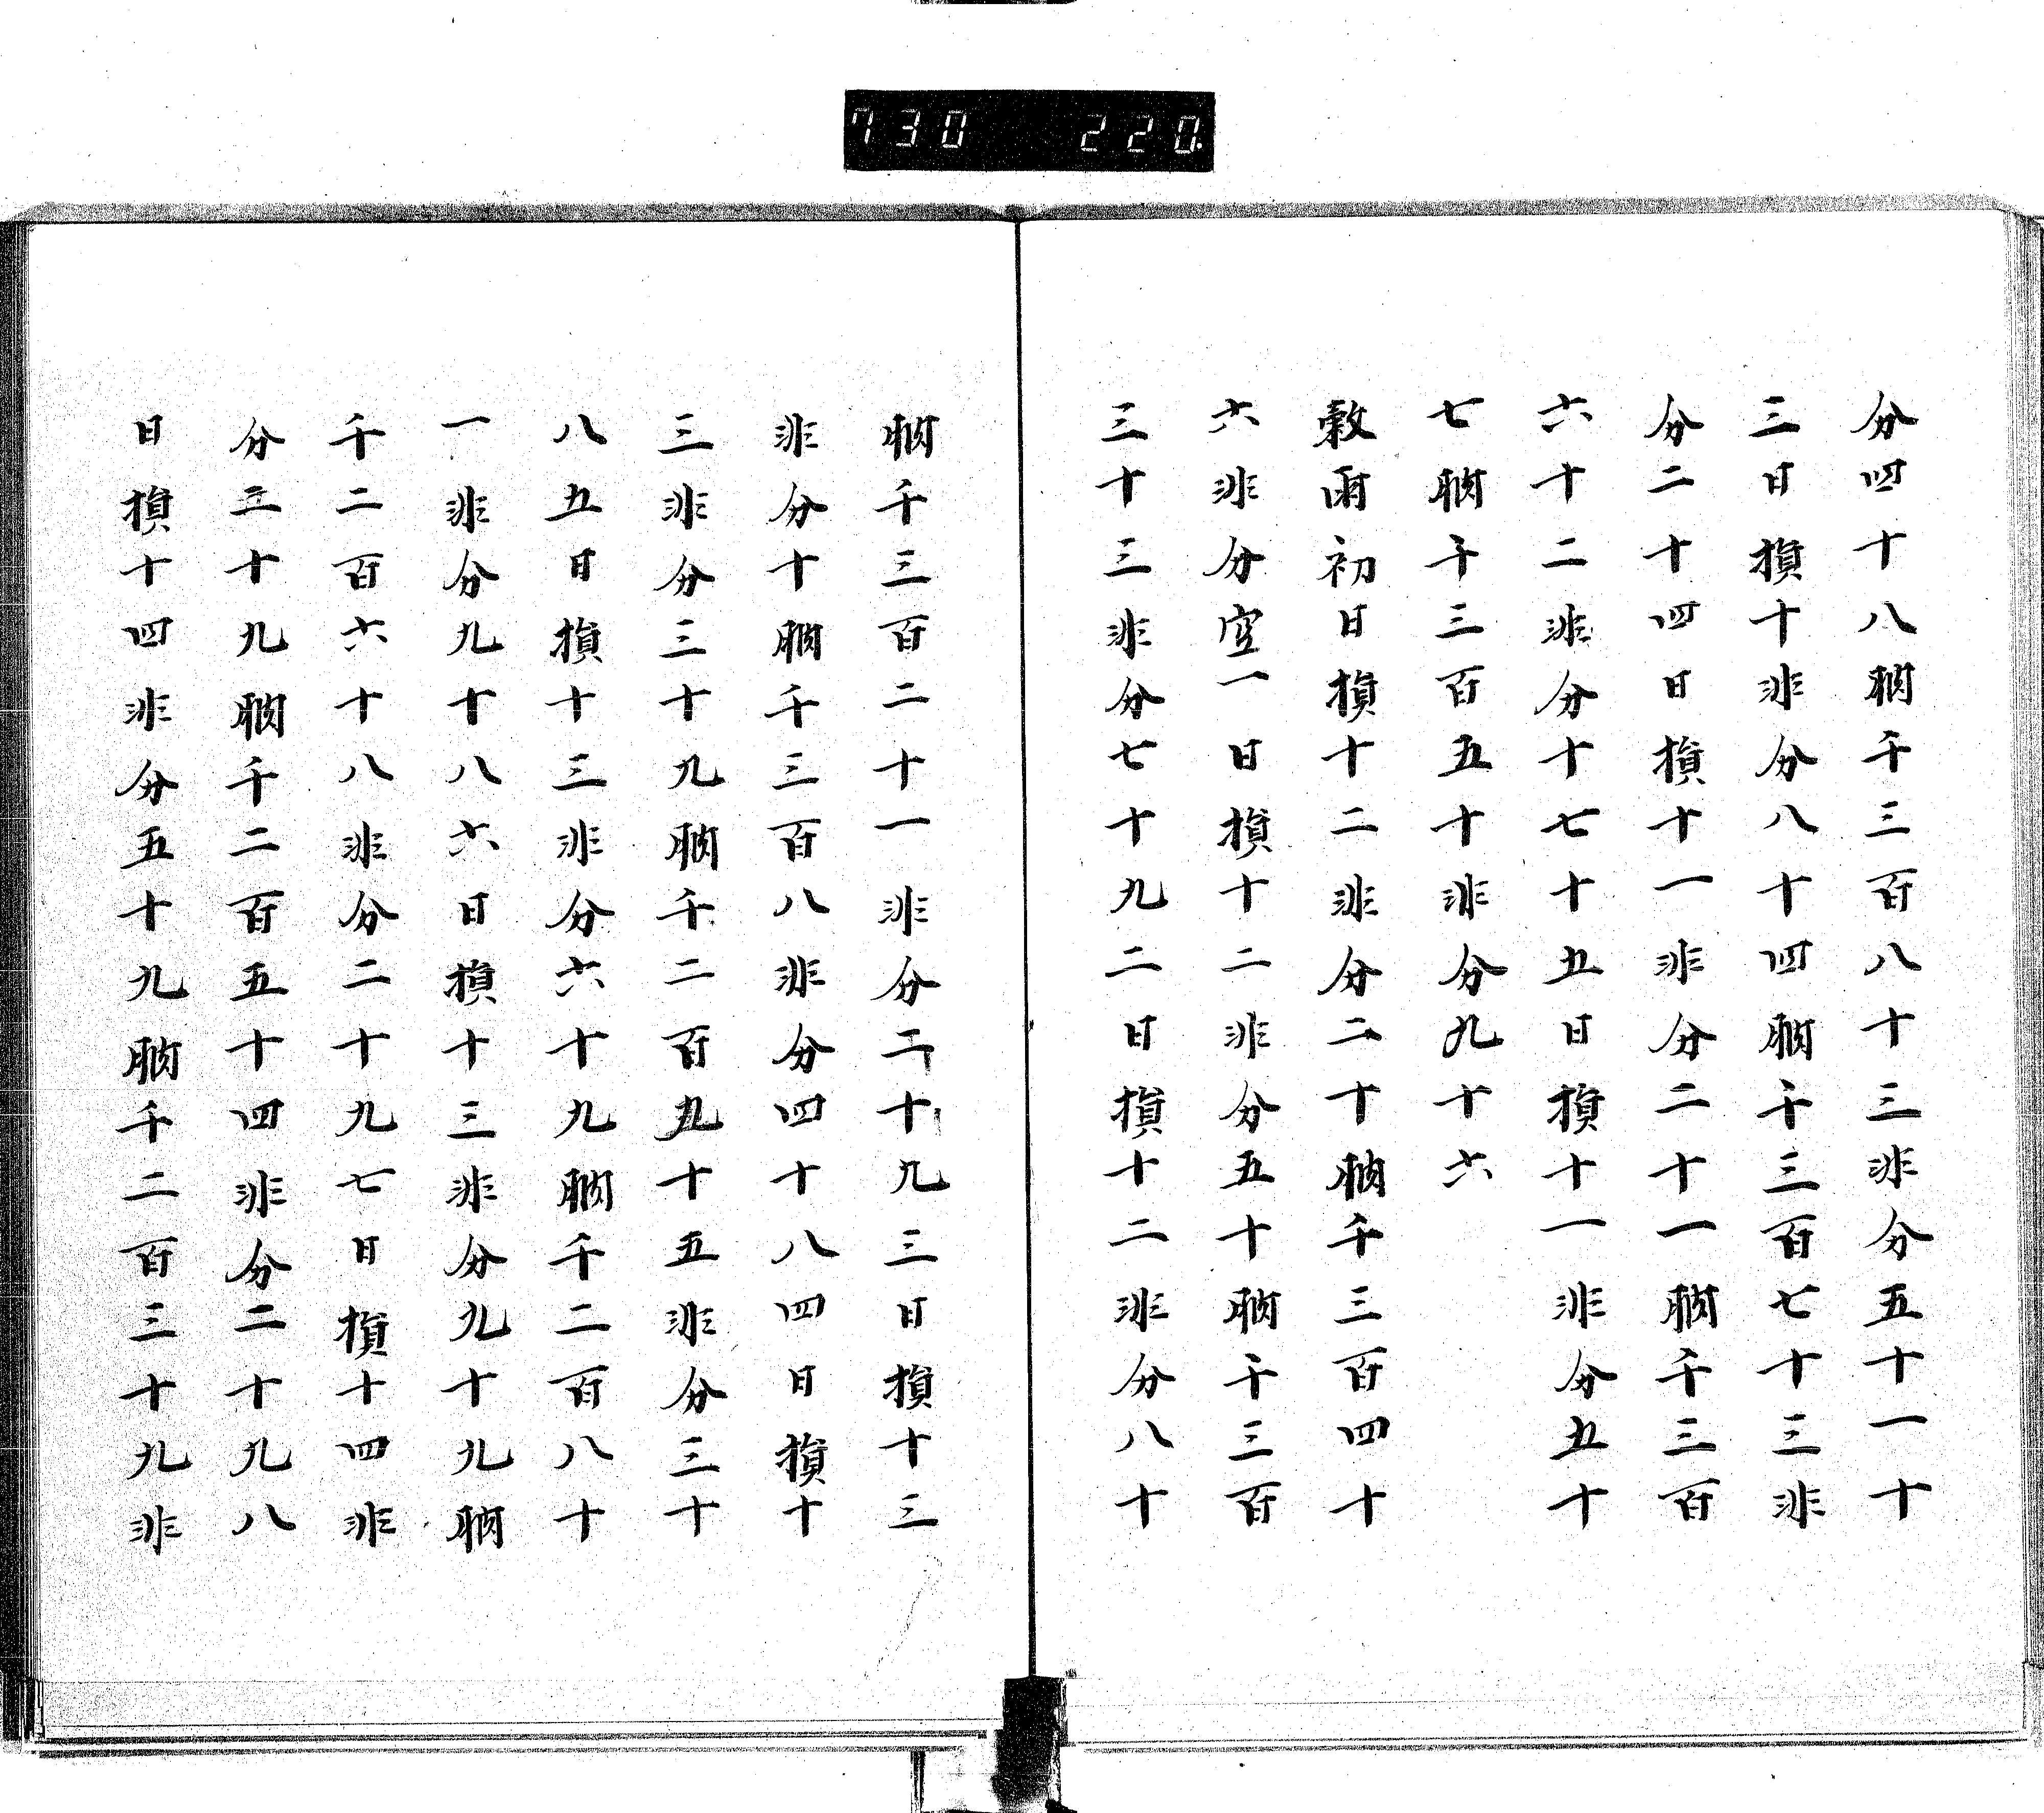 730 220
分四十八朒千三百八十三非分五十一十
三日損十非分八十四朒千三百七十三非
分二十四日損十一非分二十一朒千三百
六十二非分十七十五日損十一非分五十
七朒千三百五十非分九十六
穀雨初日損十二非分二十朒千三百四十
六非分空一日損十二非分五十朒千三百
三十三非分七十九二日損十二非分八十
朒千三百二十一非分二十九三日損十三
非分十朒千三百八非分四十八四日損十
三非分三十九朒千二百九十五非分三十
八五日損十三非分六十九朒千二百八十
一非分九十八六日損十三非分九十九朒
千二百六十八非分二十九七日損十四非
分三十九朒千二百五十四非分二十九八
日損十四非分五十九朒千二百三十九非